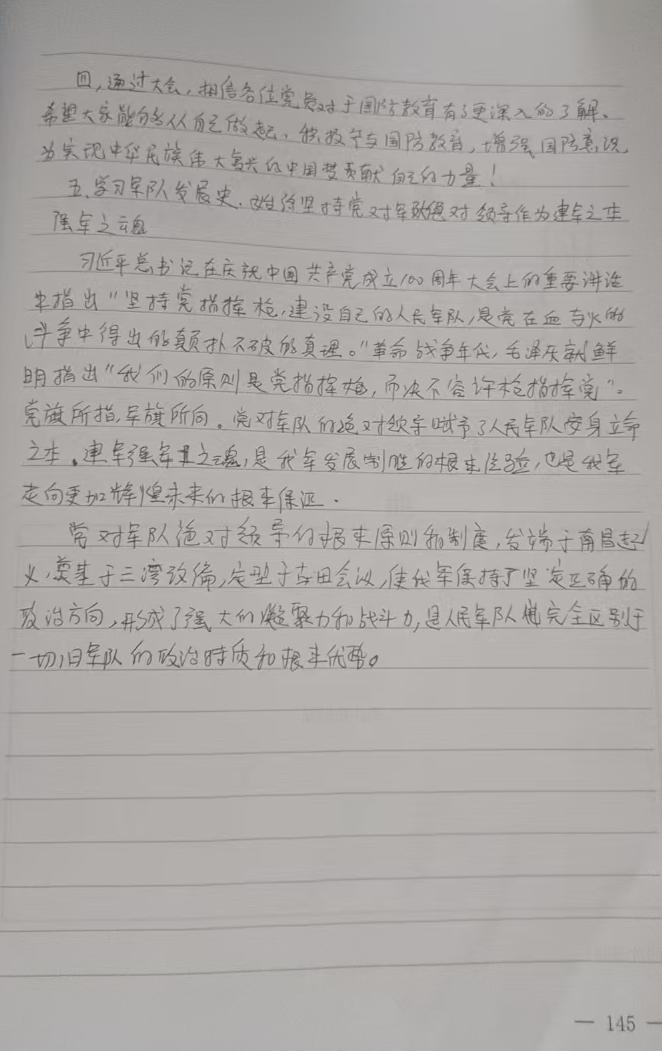 四、通过大会，相信各位党员对于国防教育有了更深入的了解。
希望大家能够从自己做起，积极参与国防教育，增强国防意识，
为实现中华民族伟大复兴的中国梦贡献自己的力量！
五、学习军队发展史，始终坚持党对军队绝对领导作为建军之本
强军之魂
习近平总书记在庆祝中国共产党成立100周年大会上的重要讲话
中指出“坚持党指挥枪，建设自己的人民军队，是党在血与火的
斗争中得出的颠扑不破的真理。”革命战争年代，毛泽东就鲜
明指出“我们的原则是党指挥枪，而决不容许枪指挥党”。
党旗所指，军旗所向。党对军队的绝对领导赋予了人民军队安身立命
之本。建军强军之魂，是我军发展制胜的根本经验，也是我军
走向更加辉煌未来的根本保证.
党对军队绝对领导的根本原则和制度，发端于南昌起
义，奠基于三湾改编，定型于古田会议，使我军保持了坚定正确的
政治方向，形成了强大的凝聚力和战斗力，是人民军队完全区别于
一切旧军队的政治特质和根本优势。
— 145 —